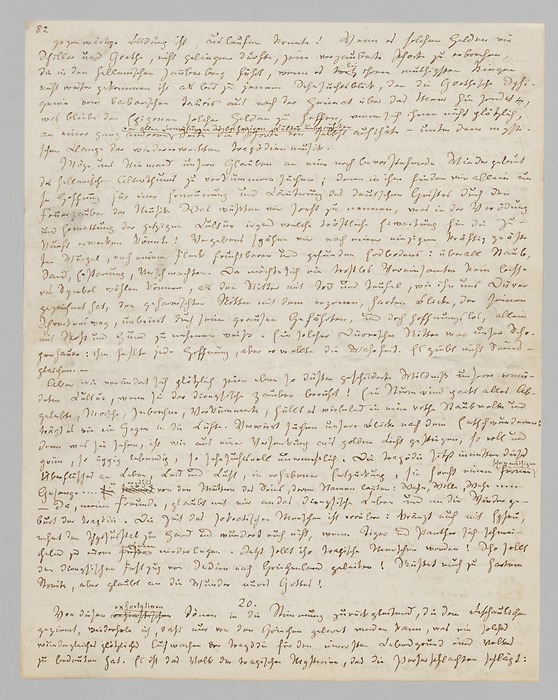 82
gegenwärtige Bildung ist, auslaufen könnte! Wenn es solchen Helden wie
Schiller und Goethe, nicht gelingen durfte, jene verzauberte Pforte zu erbrechen,
die in den hellenischen Zauberberg führt, wenn es bei ihrem muthigsten Ringen
nicht weiter gekommen ist als bis zu jenem Sehnsuchtsblick, den die Goethische Iphi-
genie vom barbarischen Tauris aus nach der Heimat über das Meer hin sendet,
was bliebe den Epigonen solcher Helden zu hoffen, wenn sich ihnen nicht plötzlich,
von allen Bemühungen der bisherigen Cultur unberührten
an einer ganz anderen Seite die Pforte von selbst aufthäte – unter dem mysti-
schen Klange der wiedererweckten Tragödienmusik.
Möge uns Niemand unsern Glauben an eine noch bevorstehende Wiedergeburt
des hellenischen Alterthums zu verkümmern suchen; denn in ihm finden wir allein un-
sre Hoffnung für eine Erneuerung und Läuterung des deutschen Geistes durch den
Feuerzauber der Musik. Was wüßten wir sonst zu nennen, was in der Verödung
und Ermattung der jetzigen Cultur irgend welche tröstliche Erwartung für die Zu-
kunft erwecken könnte? Vergebens spähen wir nach einer einzigen kräftig geäste-
ten Wurzel, nach einem Fleck fruchtbaren und gesunden Erdbodens: überall Staub,
Sand, Erstarrung, Verschmachten. Da möchte sich ein trostlos Vereinsamter kein besse-
res Symbol wählen können, als den Ritter mit Tod und Teufel, wie ihn uns Dürer
gezeichnet hat, den geharnischten Ritter mit dem erzenen, harten Blicke, der seinen
Schreckensweg, unbeirrt durch seine grausen Gefährten, und doch hoffnungslos, allein
mit Roß und Hund zu nehmen weiß. Ein solcher Dürerscher Ritter war unser Scho-
penhauer: ihm fehlte jede Hoffnung, aber er wollte die Wahrheit. Es giebt nicht Seines-
gleichen. –
Aber wie verändert sich plötzlich jene eben so düster geschilderte Wildniß unserer ermü-
deten Cultur, wenn sie der dionysische Zauber berührt! Ein Sturmwind packt alles Ab-
gelebte, Morsche, Zerbrochne, Verkümmerte, hüllt es wirbelnd in eine rothe Staubwolke und
trägt es wie ein Geier in die Lüfte. Verwirrt suchen unsere Blicke nach dem Entschwundenen:
denn was sie sehen, ist wie aus einer Versenkung ans goldne Licht gestiegen, so voll und
grün, so üppig lebendig, so sehnsuchtsvoll unermeßlich. Die Tragödie sitzt inmitten dieses
Überflusses an Leben, Leid und Lust, in erhabener Entzückung, sie horcht einem fernen
schwermüthigen
Gesange — von den Müttern des Seins, deren Namen lauten: Wahn, Wille, Wehe. —
Ja, meine Freunde, glaubt mit mir an das dionysische Leben und an die Wiederge-
burt der Tragödie. Die Zeit des sokratischen Menschen ist vorüber: kränzt euch mit Epheu,
nehmt den Thyrsusstab zur Hand und wundert euch nicht, wenn Tiger und Panther sich schmei-
chelnd zu euren niederlegen. Jetzt sollt ihr tragische Menschen werden! Ihr sollt
den dionysischen Festzug von Indien nach Griechenland geleiten! Rüstet euch zu hartem
Streite, aber glaubt an die Wunder eures Gottes!
20.
exhortativen
Von diesen Tönen in die Stimmung zurückgleitend, die dem Beschaulichen
geziemt, wiederhole ich, daß nur von den Griechen gelernt werden kann, was ein solches
wundergleiches plötzliches Aufwachen der Tragödie für den innersten Lebensgrund eines Volkes
zu bedeuten hat. Es ist das Volk der tragischen Mysterien, das die Perserschlachten schlägt: